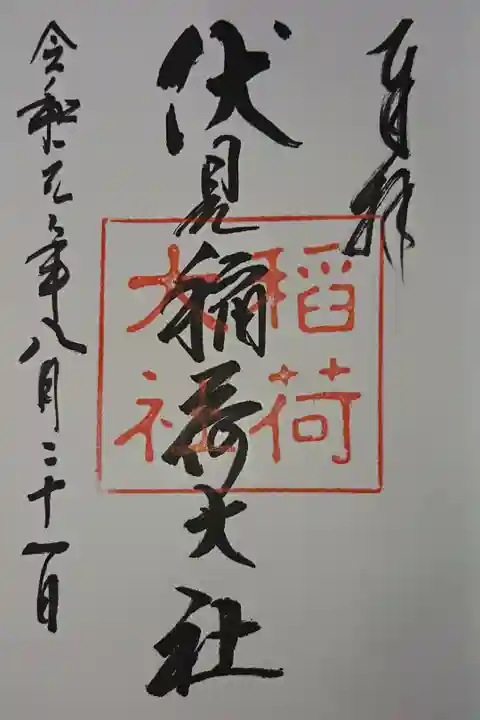 奉拝
伏見稲荷大社
稲荷
大社
令和元年八月二十一日